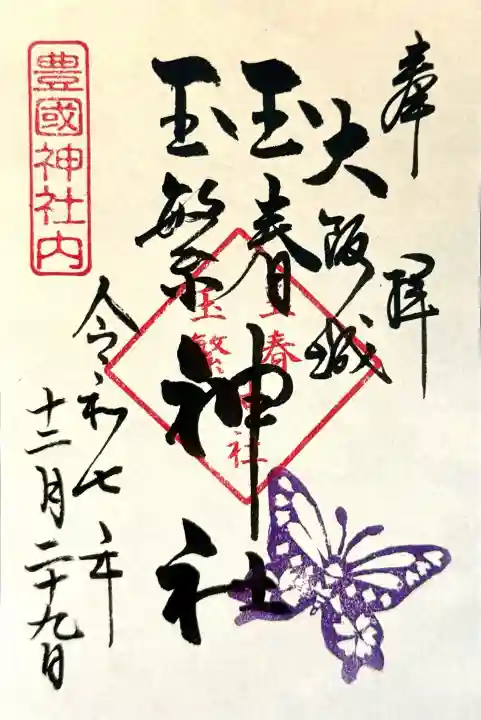 奉拝
大阪城
玉春
玉繁
神社
玉春
玉繁
神社
令和七年
十二月二十九日
豊國神社内